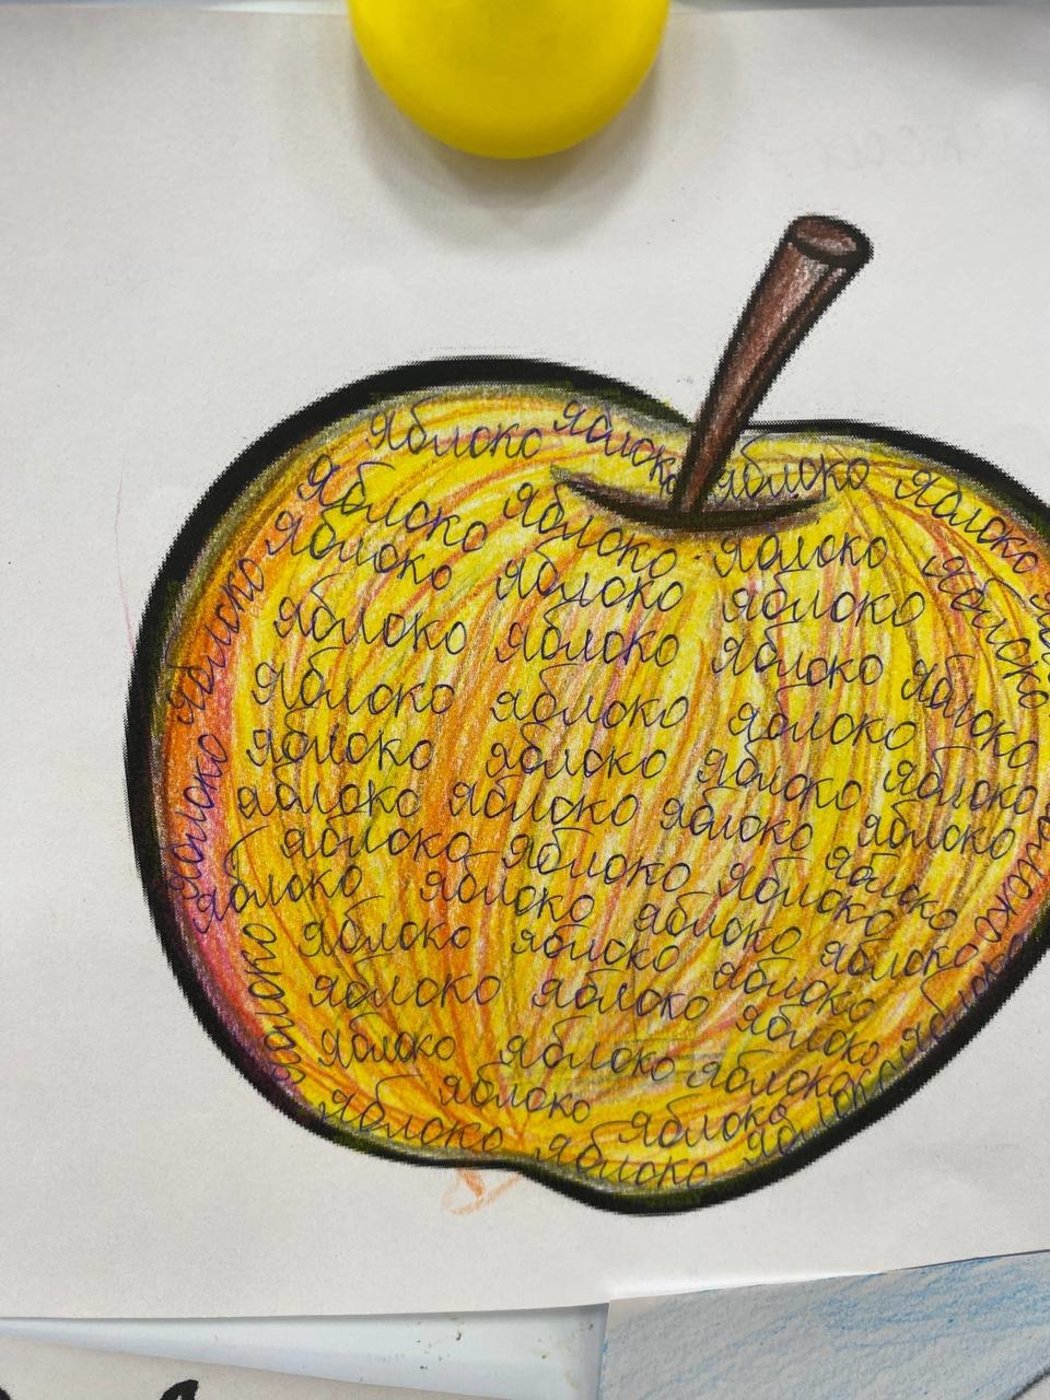 яблоко яблоко яблоко яблоко
яблоко яблоко яблоко яблоко
яблоко яблоко яблоко
яблоко яблоко яблоко яблоко
яблоко яблоко яблоко яблоко
яблоко яблоко яблоко
яблоко яблоко яблоко яблоко
яблоко яблоко яблоко яблоко
яблоко яблоко яблоко яблоко
яблоко яблоко яблоко яблоко
яблоко яблоко яблоко яблоко
яблоко яблоко яблоко яблоко
яблоко яблоко яблоко
яблоко яблоко яблоко
яблоко яблоко яблоко
яблоко яблоко